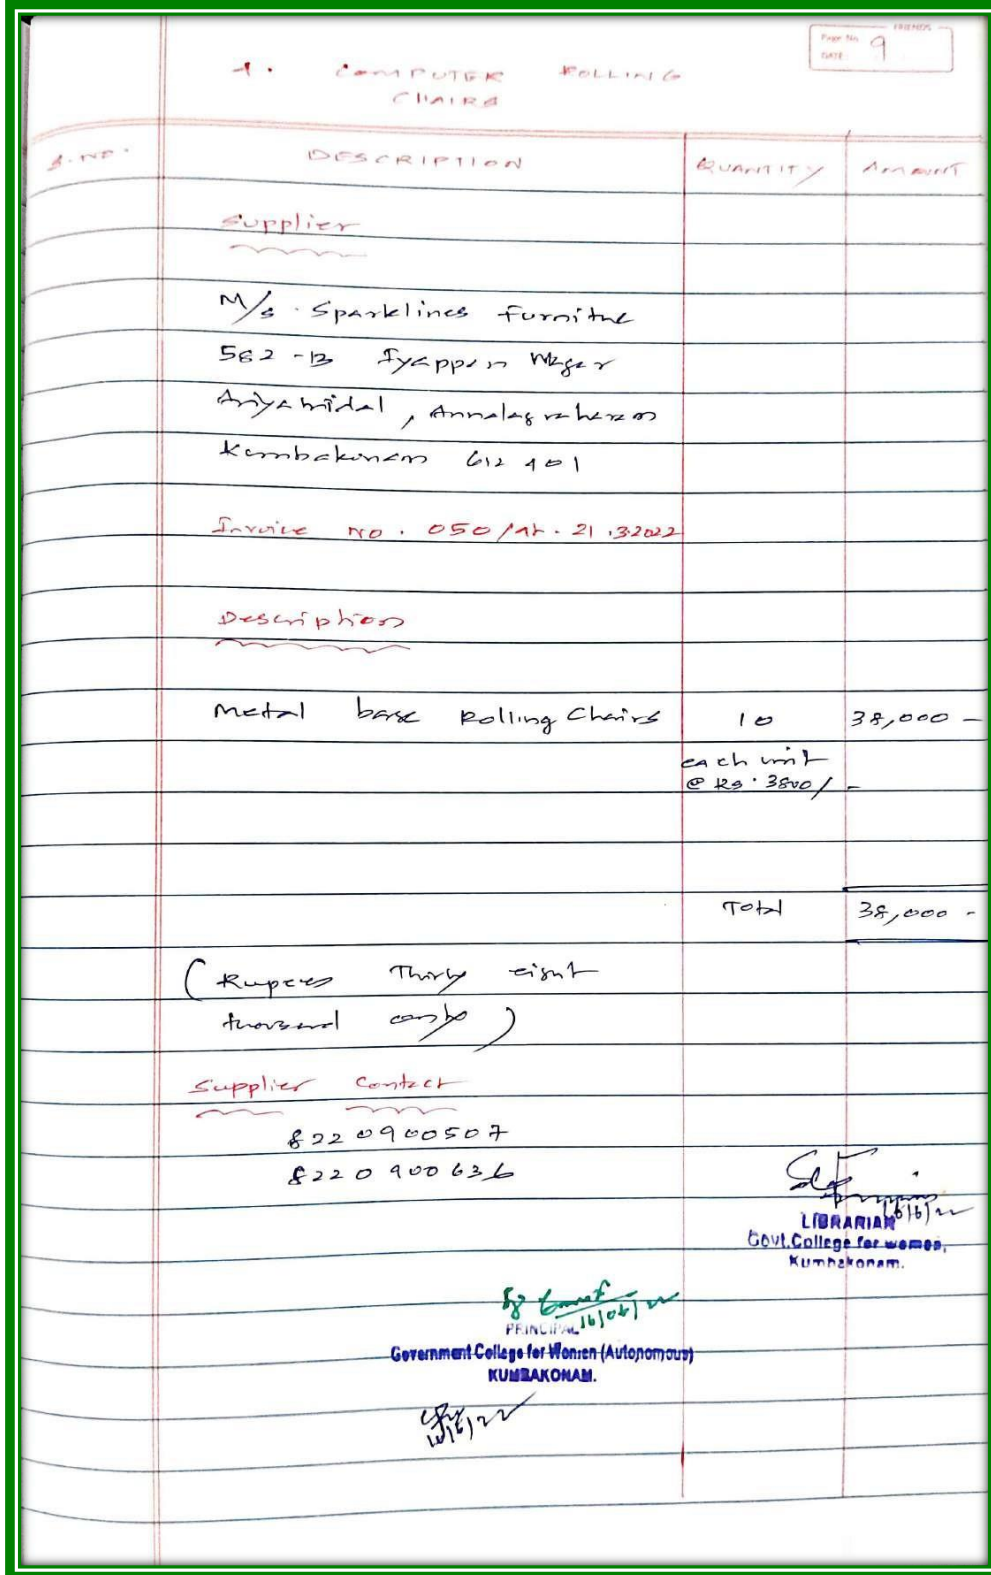 FRIENDS
Page No. 9
DATE:
4. COMPUTER ROLLING
CHAIRS
S.NO. DESCRIPTION QUANTITY AMOUNT
Supplier
M/s. Sparklines Furniture
562-B Iyappan Nagar
Ariyamidal, Annalagraharam
Kumbakonam 612 401
Invoice No. 050/dt. 21.3.2022
Description
Metal base Rolling Chairs 10 38,000 -
each unit
@ Rs. 3800/-
Total 38,000 -
(Rupees Thirty eight
thousand only)
Supplier Contact
8220900507
8220900636
16/6/22
LIBRARIAN
Govt. College for women,
Kumbakonam.
16/06/22
PRINCIPAL
Government College for Women (Autonomous)
KUMBAKONAM.
16/6/22